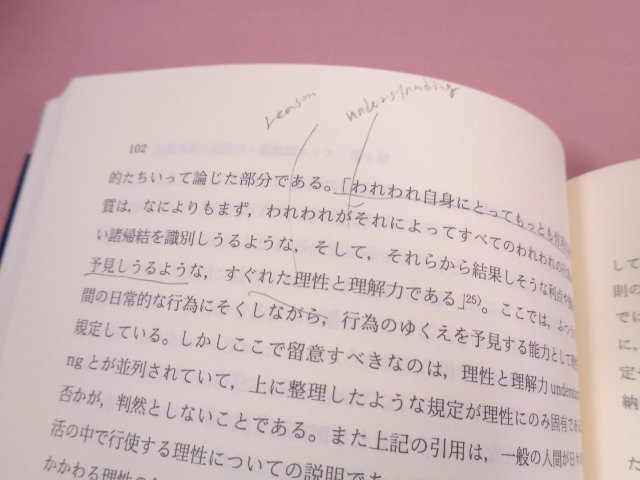 reason
understanding
102
的たちいって論じた部分である。「われわれ自身にとってもっとも有
質は，なによりもまず，われわれがそれによってすべてのわれわれの行
い諸帰結を識別しうるような，そして，それらから結果しそうな利
予見しうるような，すぐれた理性と理解力である」25)。ここでは，ふつ
間の日常的な行為にそくしながら，行為のゆくえを予見する能力として
規定している。しかしここで留意すべきなのは，理性と理解力 underst
ngとが並列されていて，上に整理したような規定が理性にのみ固有であ
否かが，判然としないことである。また上記の引用は，一般の人間が日
活の中で行使する理性についての説明であ
かかわる理性の
して
則の
では
に，
定
納
た